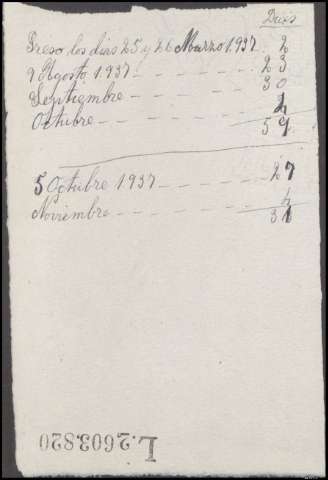 Dias
Preso los dias 25 y 26 Marzo 1937. 2
9 Agosto 1937 - - - - 23
Septiembre - - - - 30
Octubre - - - - 4
59
5 Octubre 1937 - - - - - 27
Noviembre - - - - - 4
31
L.2603820